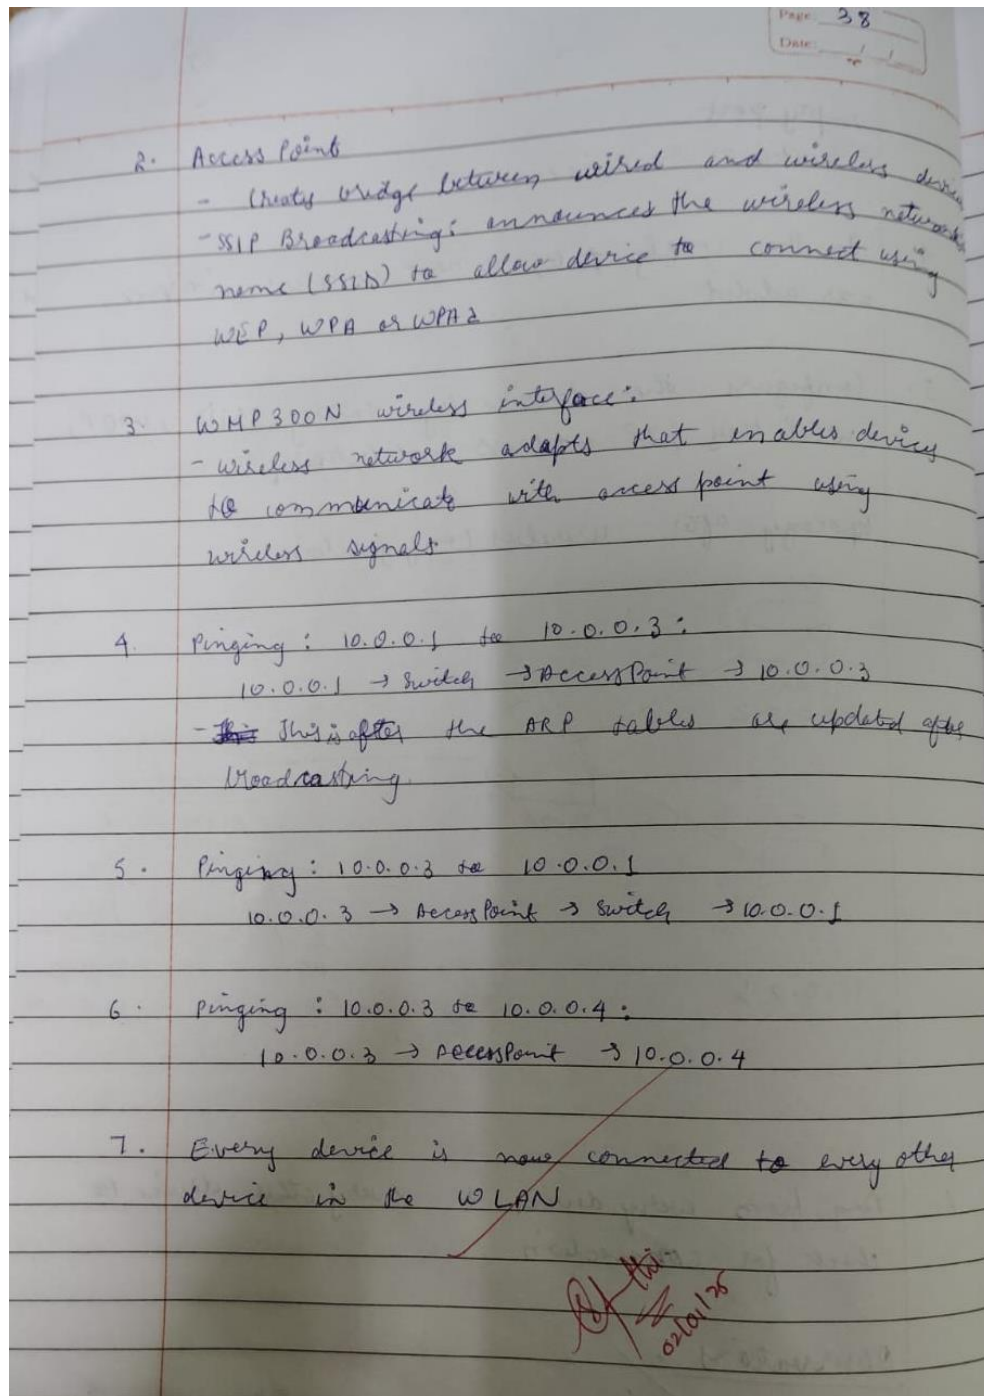 Page 38
Date: / /
2. Access Point
- Creates bridge between wired and wireless device
- SSIP Broadcasting: announces the wireless network
name (SSID) to allow device to connect using
WEP, WPA or WPA2
3. WMP300N wireless interface:
- wireless network adapts that enables devices
to communicate with access point using
wireless signals.
4. Pinging: 10.0.0.1 to 10.0.0.3:
10.0.0.1 → Switch → AccessPoint → 10.0.0.3
- This is after the ARP tables are updated after
broadcasting
5. Pinging: 10.0.0.3 to 10.0.0.1
10.0.0.3 → AccessPoint → Switch → 10.0.0.1
6. Pinging: 10.0.0.3 to 10.0.0.4:
10.0.0.3 → AccessPoint → 10.0.0.4
7. Every device is now connected to every other
device in the WLAN
02/01/25